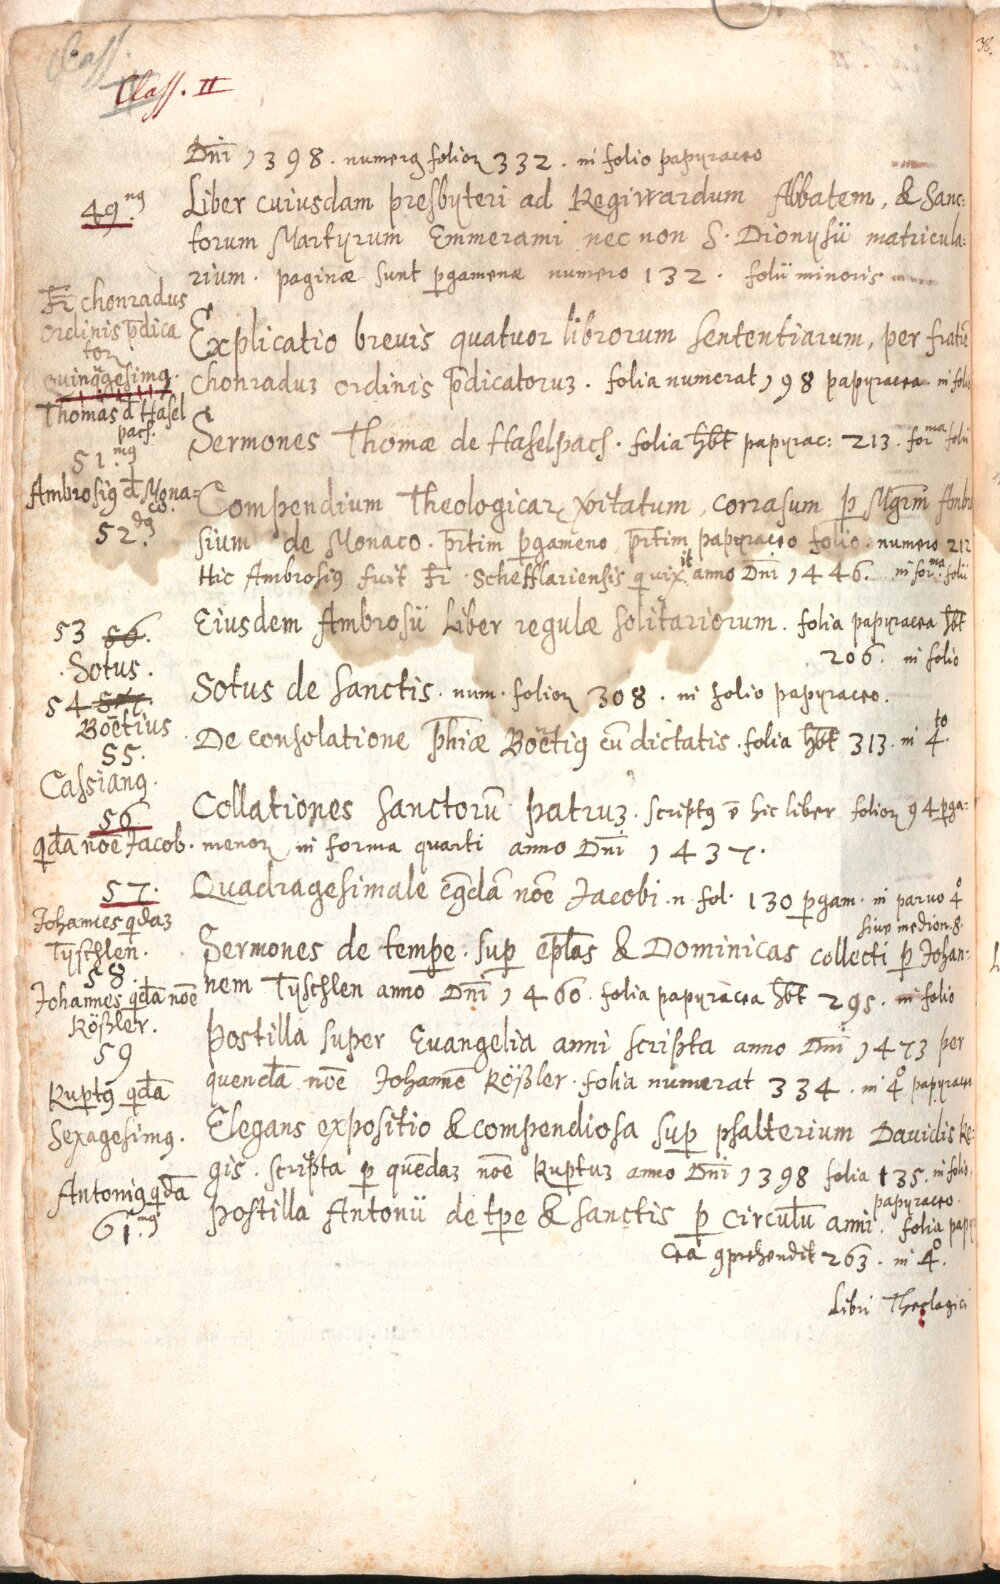 Class.
Class. II
Dn̄i 1398. numerꝰ folioꝝ 332. in folio papyraceo
49.nꝰ
Liber cuiusdam presbyteri ad Regiwardum Abbatem, & Sanc:
torum Martyrum Emmerami nec non S. Dionysii matricula:
rium. paginæ sunt ꝑgamenæ numero 132. folii minoris
Fr̄ chonradus
ordinis p̄dica
toꝝ
quinq̄gesimꝰ.
Explicatio brevis quatuor librorum sententiarum, per fratrē
chonraduꝫ ordinis p̄dicatoruꝫ. folia numerat 198 papyracea in foli
Thomas d̄ Hasel
pach.
51.mꝰ
Sermones Thomæ de Haselpach. folia hb̄t papyrac: 213. forma folii
Ambrosiꝰ d̄ Mona=
co.
52.dꝰ
Compendium Theologicaꝝ v̄itatum, corrasum ꝑ Mgr̄m Ambro
sium de Monaco. p̄rtim ꝑgameno, p̄rtim papyraceo folio. numero 212
Hic Ambrosiꝰ fuit Fr̄ Schefflariensis q vixit anno Dn̄i 1446. in forma folii
53 56.
Eiusdem Ambrosii Liber regulæ solitariorum. folia papyracea hb̄t
206. in folio
Sotus.
54
Sotus de sanctis. num. folioꝝ 308. in folio papyraceo.
Boëtius
55.
De consolatione ph̄iæ Boëtiꝰ cū dictatis. folia hb̄t 313. in 4.to
Cassianꝰ.
56
Collationes sanctorū patruꝫ. scriptꝰ ē hic liber folioꝝ 94 ꝑga:
menoꝝ in forma quarti anno Dn̄i 1437.
qdā noē Jacob.
57.
Quadragesimale cꝰdā noē Jacobi. n. fol. 130 ꝑgam. in paruo 4°
sive medion. 8.
Johannes qdaꝫ
Tyschlen.
58.
Sermones de tempe. suꝑ ep̄las & Dominicas collecti ꝑ Johan=
nem Tyschlen anno Dn̄i 1460. folia papyracea hb̄t 295. in folio
Johannes qdā noē
Rößler.
59
Postilla super Evangelia anni scripta anno Dn̄i 1473 per
quendā noē Johannē Rößler. folia numerat 334. in 4° papyrace
Ruptꝰ qdā
Sexagesimꝰ.
Elegans expositio & compendiosa suꝑ psalterium Davidis Re:
gis. scripta ꝑ quēdaꝫ noē Ruptuꝫ anno Dn̄i 1398 folia 135. in folio
papyraceo.
Antoniꝰ qdā
61.mꝰ
Postilla Antonii de tp̄e & sanctis ꝑ circulū anni. folia papy
cea ꝯprehendit 263. in 4°.
Libri Theologici
38.